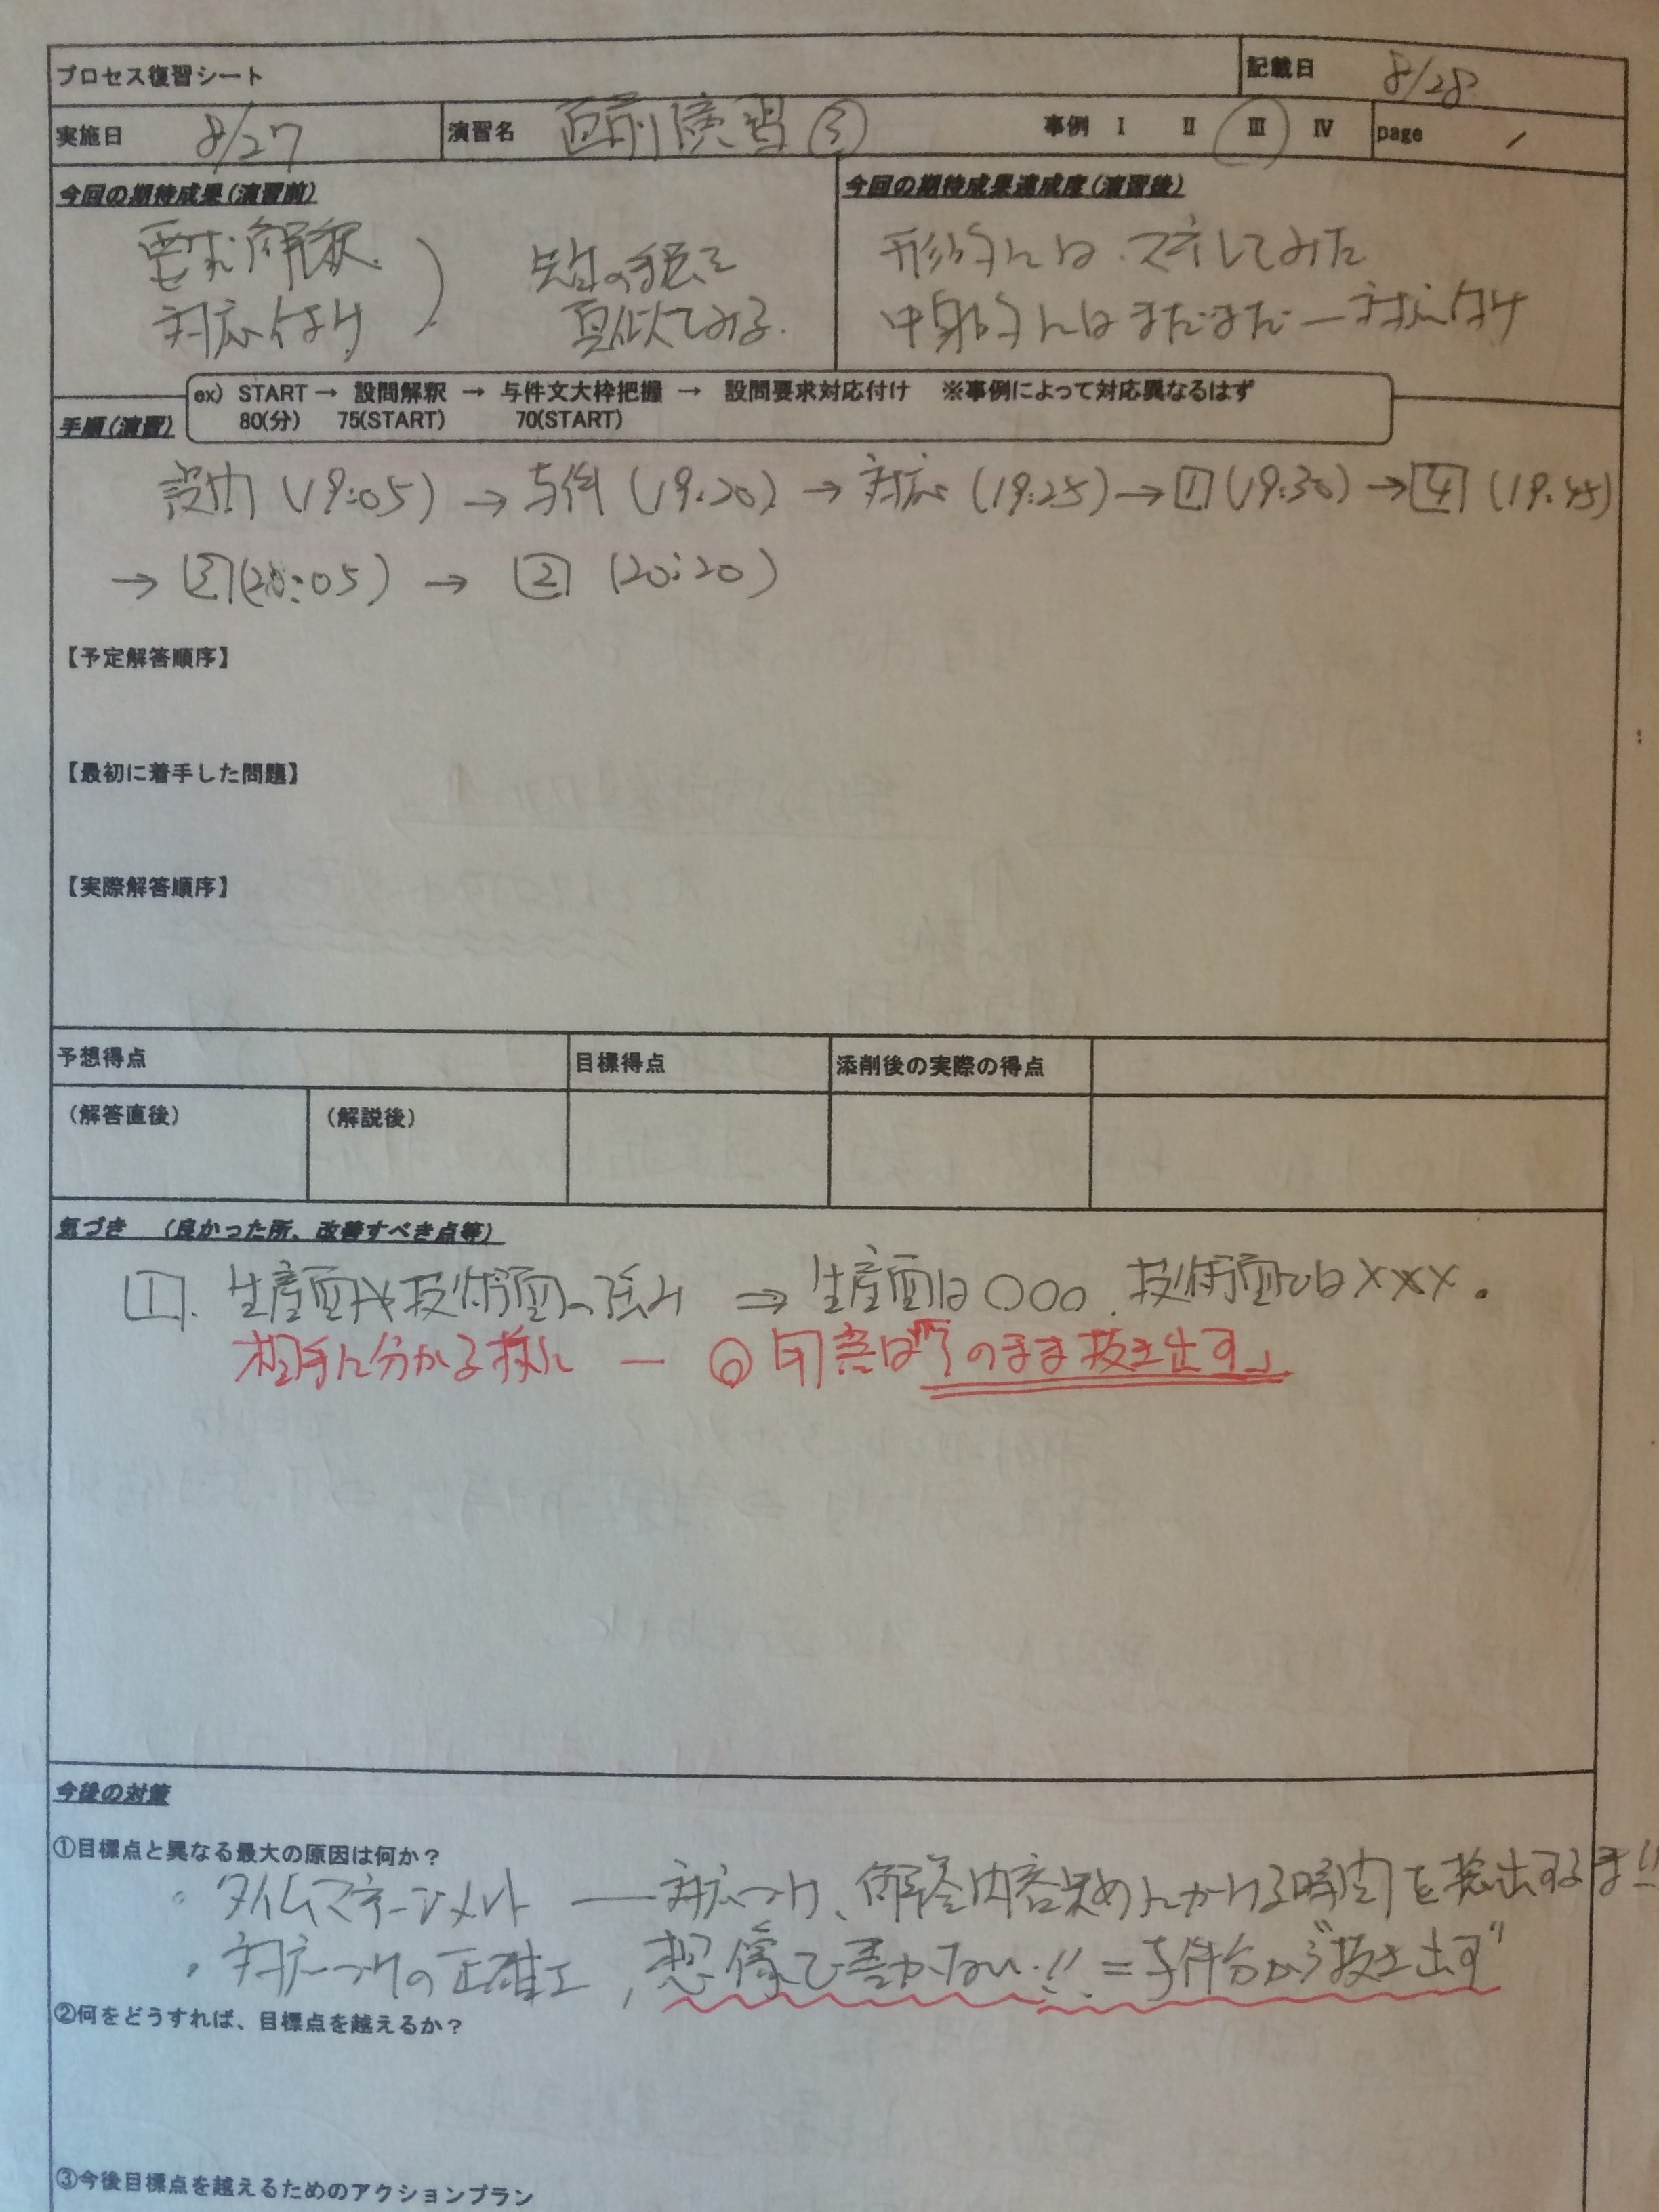 プロセス復習シート
記載日 8/28
実施日 8/27 演習名 直前演習③ 事例 Ⅰ Ⅱ Ⅲ Ⅳ page 1
今回の期待成果(演習前)
要求解釈
対応付け
先生の手法を
真似てみる.
今回の期待成果達成度(演習後)
形的には、マネしてみた
中身的にはまだまだ ー 対応付け
手順(演習)
ex) START → 設問解釈 → 与件文大枠把握 → 設問要求対応付け ※事例によって対応異なるはず
80(分) 75(START) 70(START)
設問 (19:05) → 与件 (19:20) → 対応 (19:25) → 1 (19:30) → 4 (19:45)
→ 3 (20:05) → 2 (20:20)
【予定解答順序】
【最初に着手した問題】
【実際解答順序】
予想得点 目標得点 添削後の実際の得点
(解答直後) (解説後)
気づき (良かった所、改善すべき点等)
1. 生産面や技術面の強み ⇒ 生産面は○○○、技術面では×××。
相手に分かる様に ー ◎ 内容は「そのまま抜き出す」
今後の対策
①目標点と異なる最大の原因は何か?
・タイムマネージメント ― 対応づけ、解答内容決めにかける時間を捻出する!!
・対応づけの正確さ, 想像で書かない!! = 与件分から"抜き出す"
②何をどうすれば、目標点を越えるか?
③今後目標点を越えるためのアクションプラン